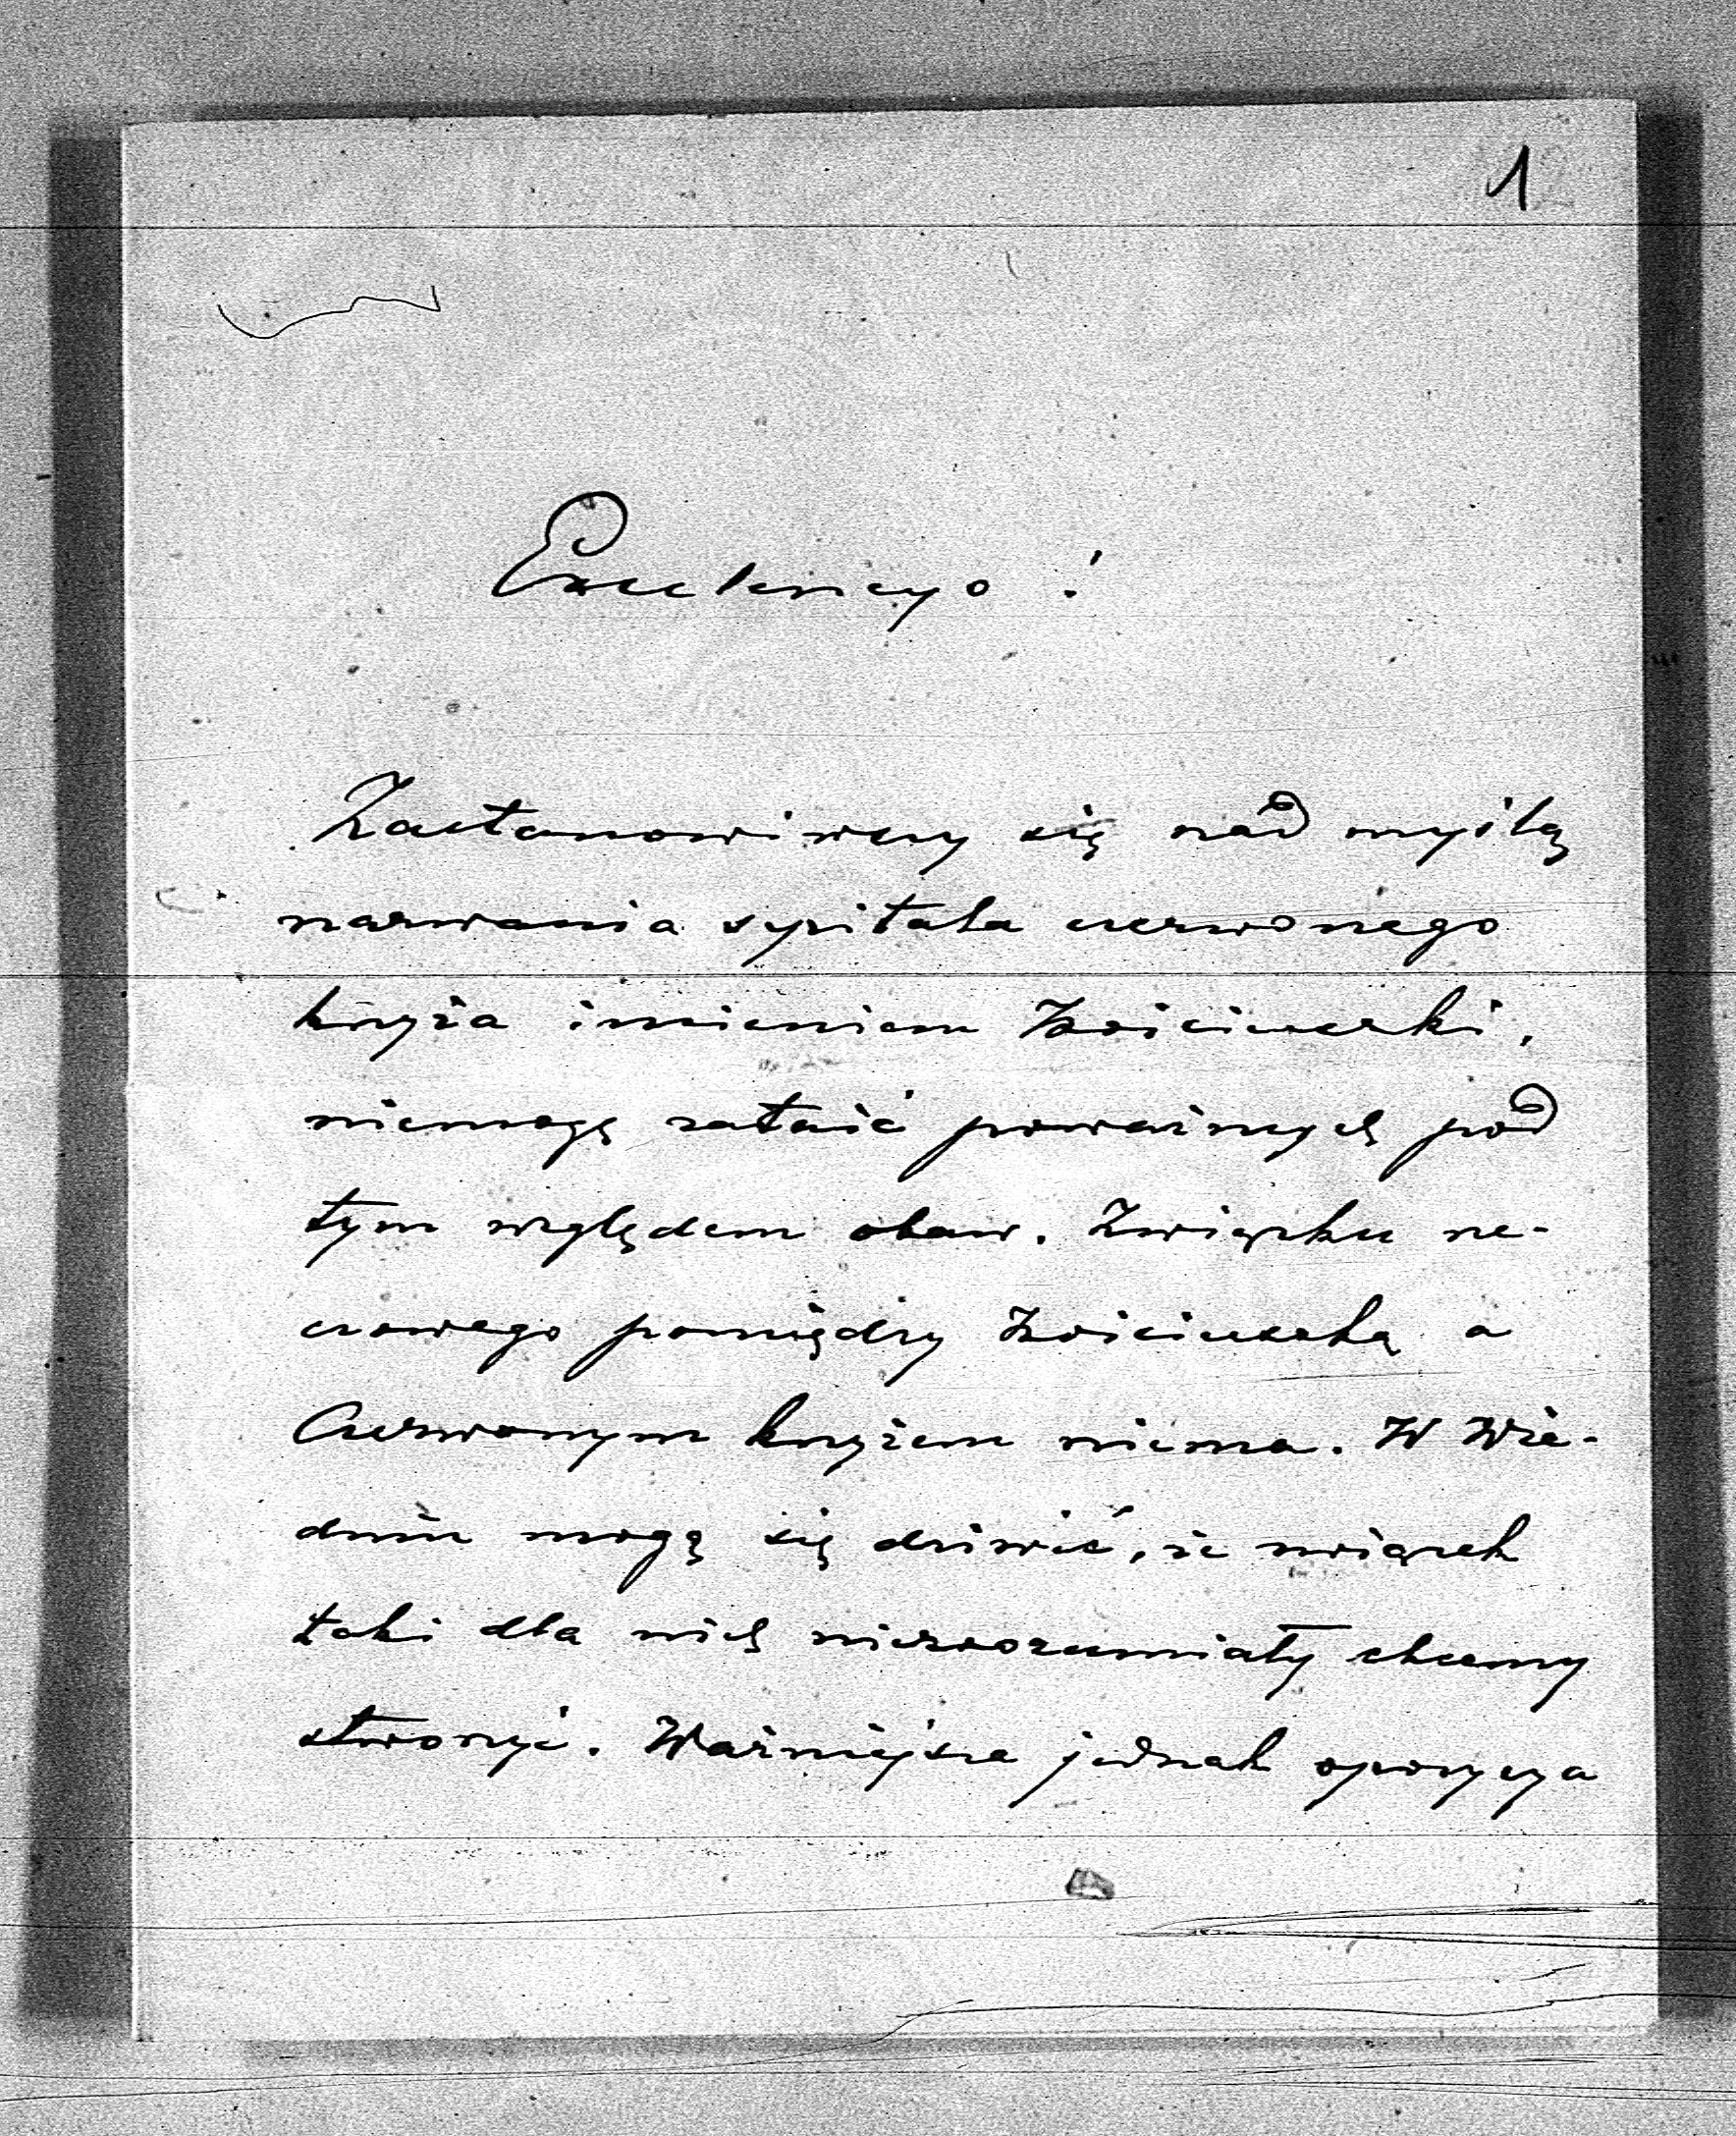 1
Excelencyo!
Zastanowiwszy się nad myślą
nazwania szpitala czerwonego
krzyża imieniem Kościuszki,
niemogę zataić poważnych pod
tym względem obaw. Związku rze-
czowego pomiędzy Kościuszką a
Czerwonym krzyżem niema. W Wie-
dniu mogą się dziwić, że związek
taki dla nich niezrozumiały chcemy
stworzyć. Ważniejsza jednak opozycya